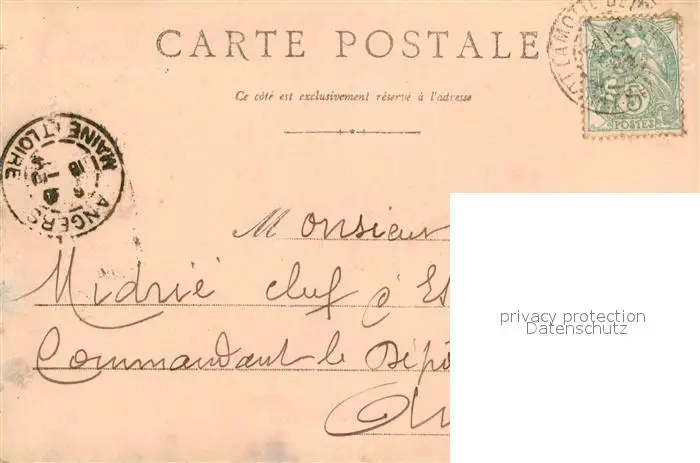 CARTE POSTALE
Ce côté est exclusivement réservé à l'adresse
LAMOTTE-BE
5
POSTES
MAINE ET LOIRE
ANGERS
Monsieur
Midrié chef d'Es
Commandant le Dépô
privacy protection
Datenschutz